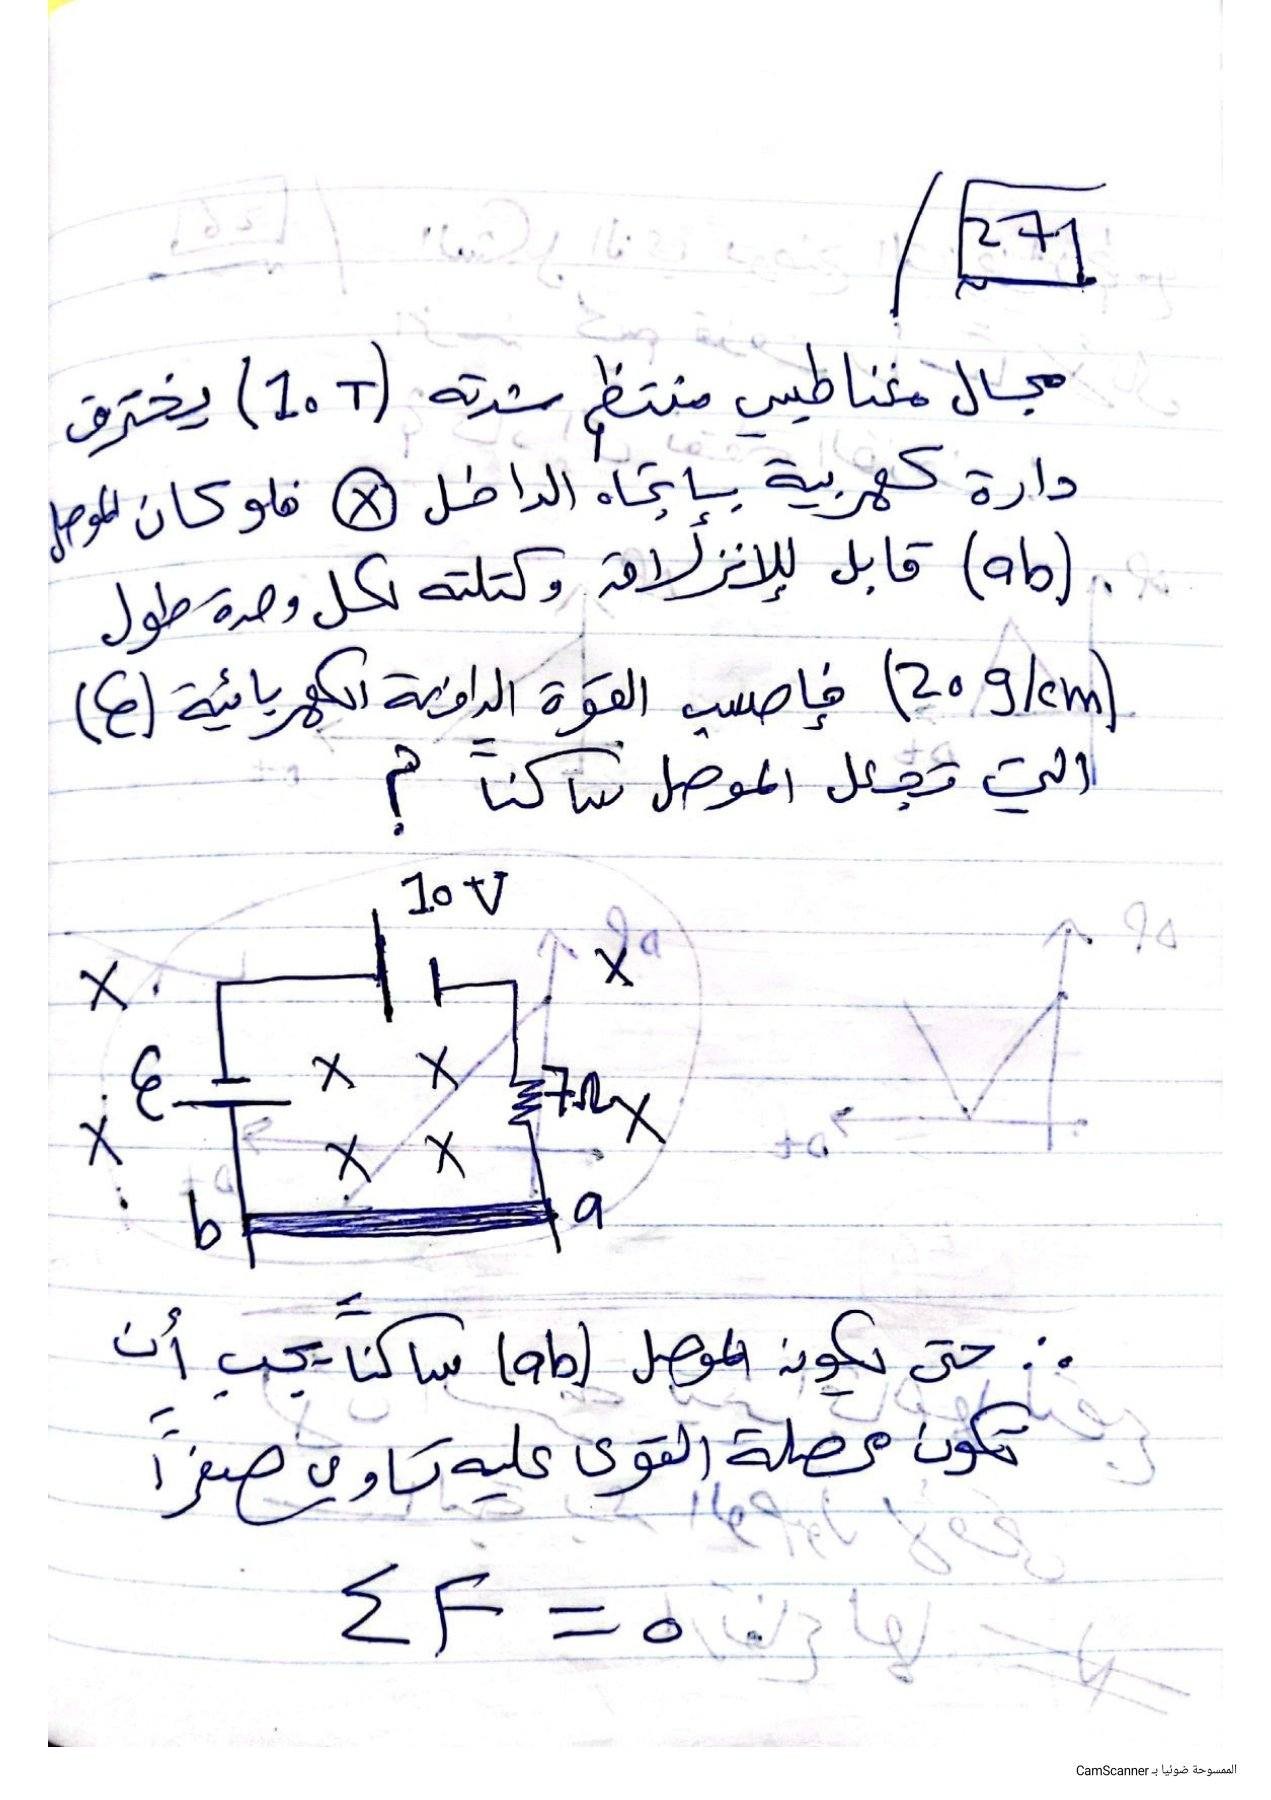 271
مجال مغناطيسي منتظم شدته (10 T) يخترق
دارة كهربية بإتجاه الداخل ⊗ فلو كان الموصل
(ab) قابل للإنزلاق وكتلته لكل وحدة طول
(20 g/cm) فإحسب القوة الدافعة الكهربائية (ε)
التي تجعل الموصل ساكناً ؟
10 V
X X
ε X X 7Ω
X X X X
b a
∴ حتى يكون الموصل (ab) ساكناً يجب أن
تكون محصلة القوى عليه تساوي صفراً
ΣF = 0
الممسوحة ضوئيا بـ CamScanner